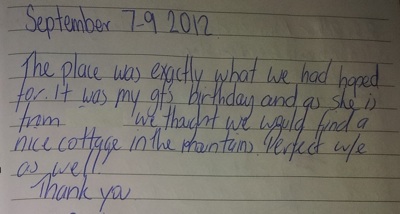 September 7-9 2012
The place was exactly what we had hoped
for. It was my gfs birthday and as she is
from we thought we would find a
nice cottage in the mountains. Perfect w/e
as well.
Thank you